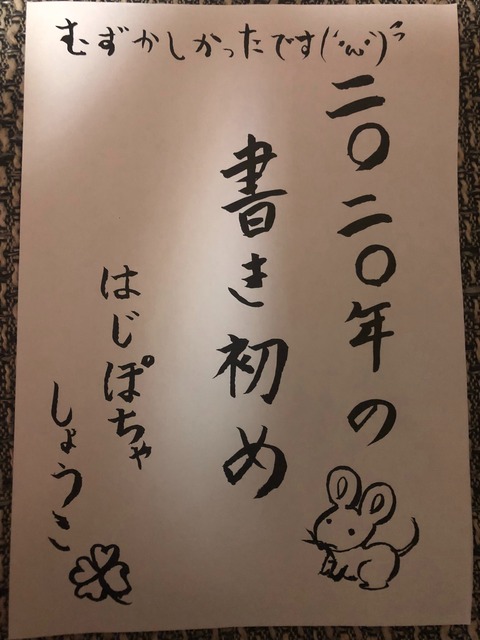 むずかしかったです(´･ω･`)ゝ
二〇二〇年の
書き初め
はじぽちゃ
しょうこ